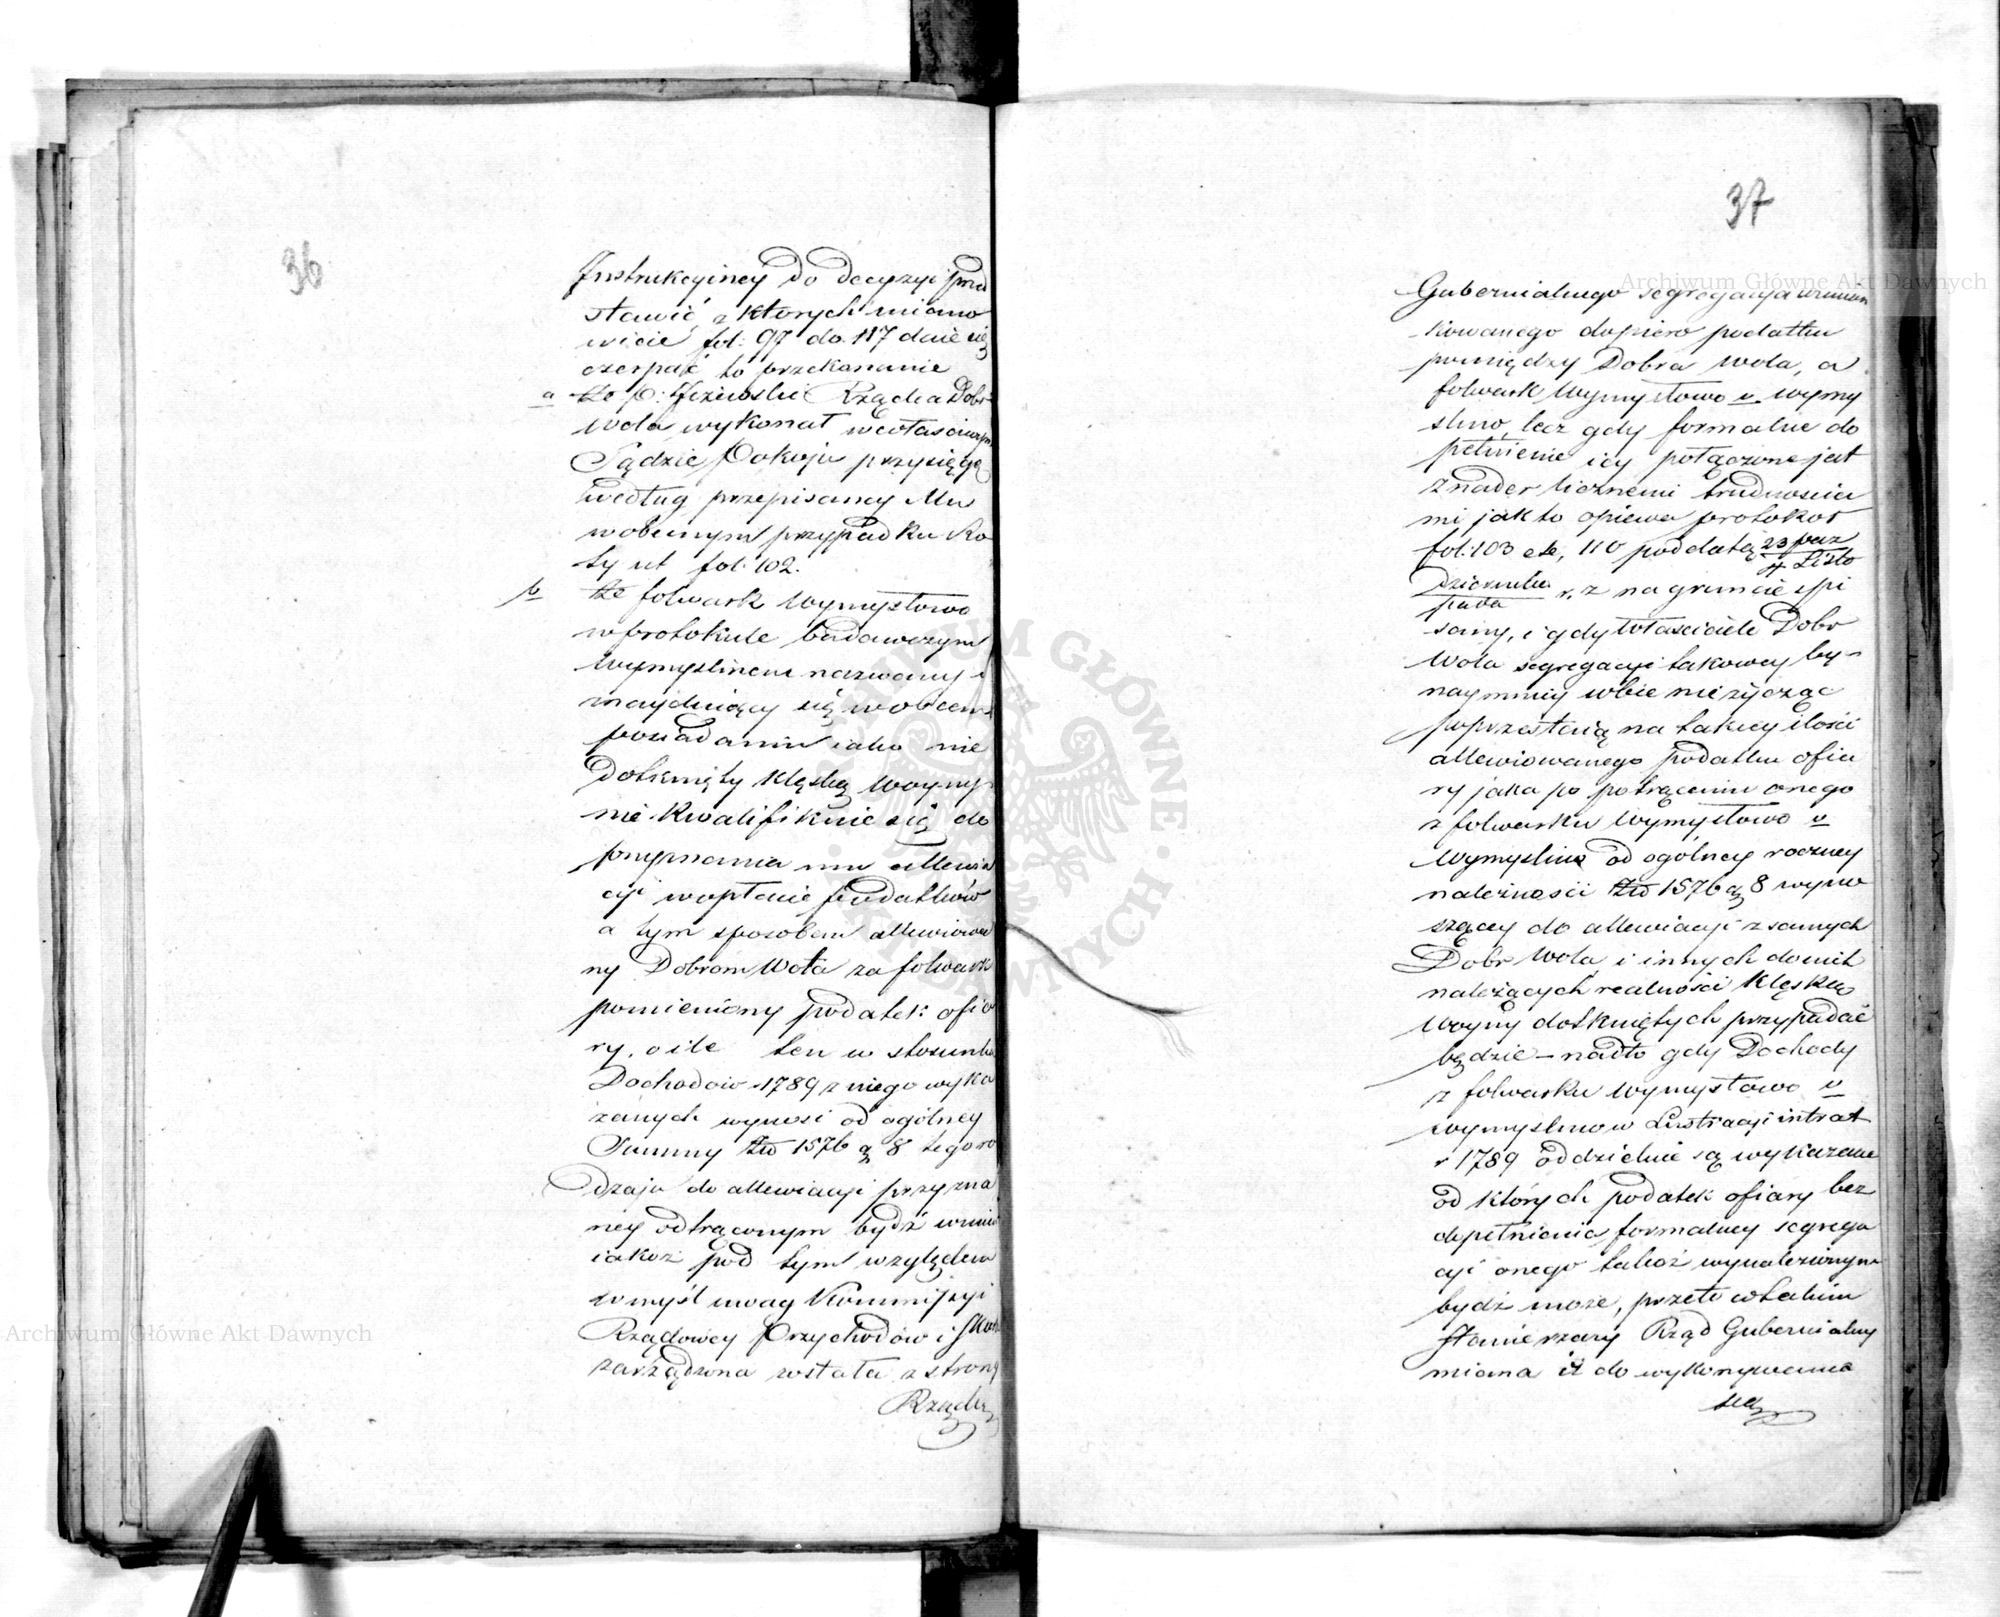 36
Instrukcyiney do decyzyi przed
stawić z których miano
wicie fol: 97 do 117 daie się
czerpać to przekonanie
a że P: Jeżewski Rządca Dobr
Wola, wykonał w właściwym
Sądzie Pokoju przysięgę
według przepisaney Mu
w obecnym przypadku Ro
ty ut fol. 102.
b że folwark Wymysłowo
w protokule badawczym
Wymyslinem nazwany i
znayduiący się w obcem
posiadaniu iako nie
dotknięty klęską woyny
nie kwalifikuie się do
przyznania mu allewia
cyi w opłacie podatków
a tym sposobem allewiowa
ny Dobrom Wola za folwark
pomieniony podatek ofia
ry, o ile ten w stosunku
Dochodów 1789 z niego wyka
zanych wynosi od ogólney
Summy złt 1576 g 8 tego ro
dzaju do allewiacyi przyzna
ney odtrąconym bydź winien
iakoż pod tym względem
w myśl uwag Kommissyi
Rządowey Przychodów i Skarbu
zarządzona została z strony
Rządu
37
Gubernialnego segregacya wzmian
kowanego dopiero podatku
pomiędzy Dobra Wola, a
folwark Wymysłowo v. Wymy
slino, lecz gdy formalne do
pełnienie iey połączone jest
z nader licznemi trudnościa
mi jak to opiewa protokoł
fol: 103 etc, 110 pod datą 23 paz
dziernika / 4 Listo
pada r. z na gruncie spi
sany, i gdy właściciele Dobr
Wola segregacyi takowey by-
naymniey sobie nie życząc
poprzestaią na takiey ilości
allewiowanego podatku ofia
ry jaka po potrąceniu onego
z folwarku Wymysłowo v
Wymyslino od ogólney roczney
należności złt 1576 g 8 wyno
szącey do allewiacyi z samych
Dobr Wola i innych do nich
należących realności klęską
woyny dotkniętych przypadać
będzie – nadto gdy Dochody
z folwarku Wymysłowo v
Wymyslino w Lustracyi intrat
r 1789 oddzielnie są wykazane
od których podatek ofiary bez
dopełnienia formalney segrega
cyi onego także wynalezionym
bydź może, przeto w takim
Stanie rzeczy Rząd Gubernialny
mniema iż do wykonywania